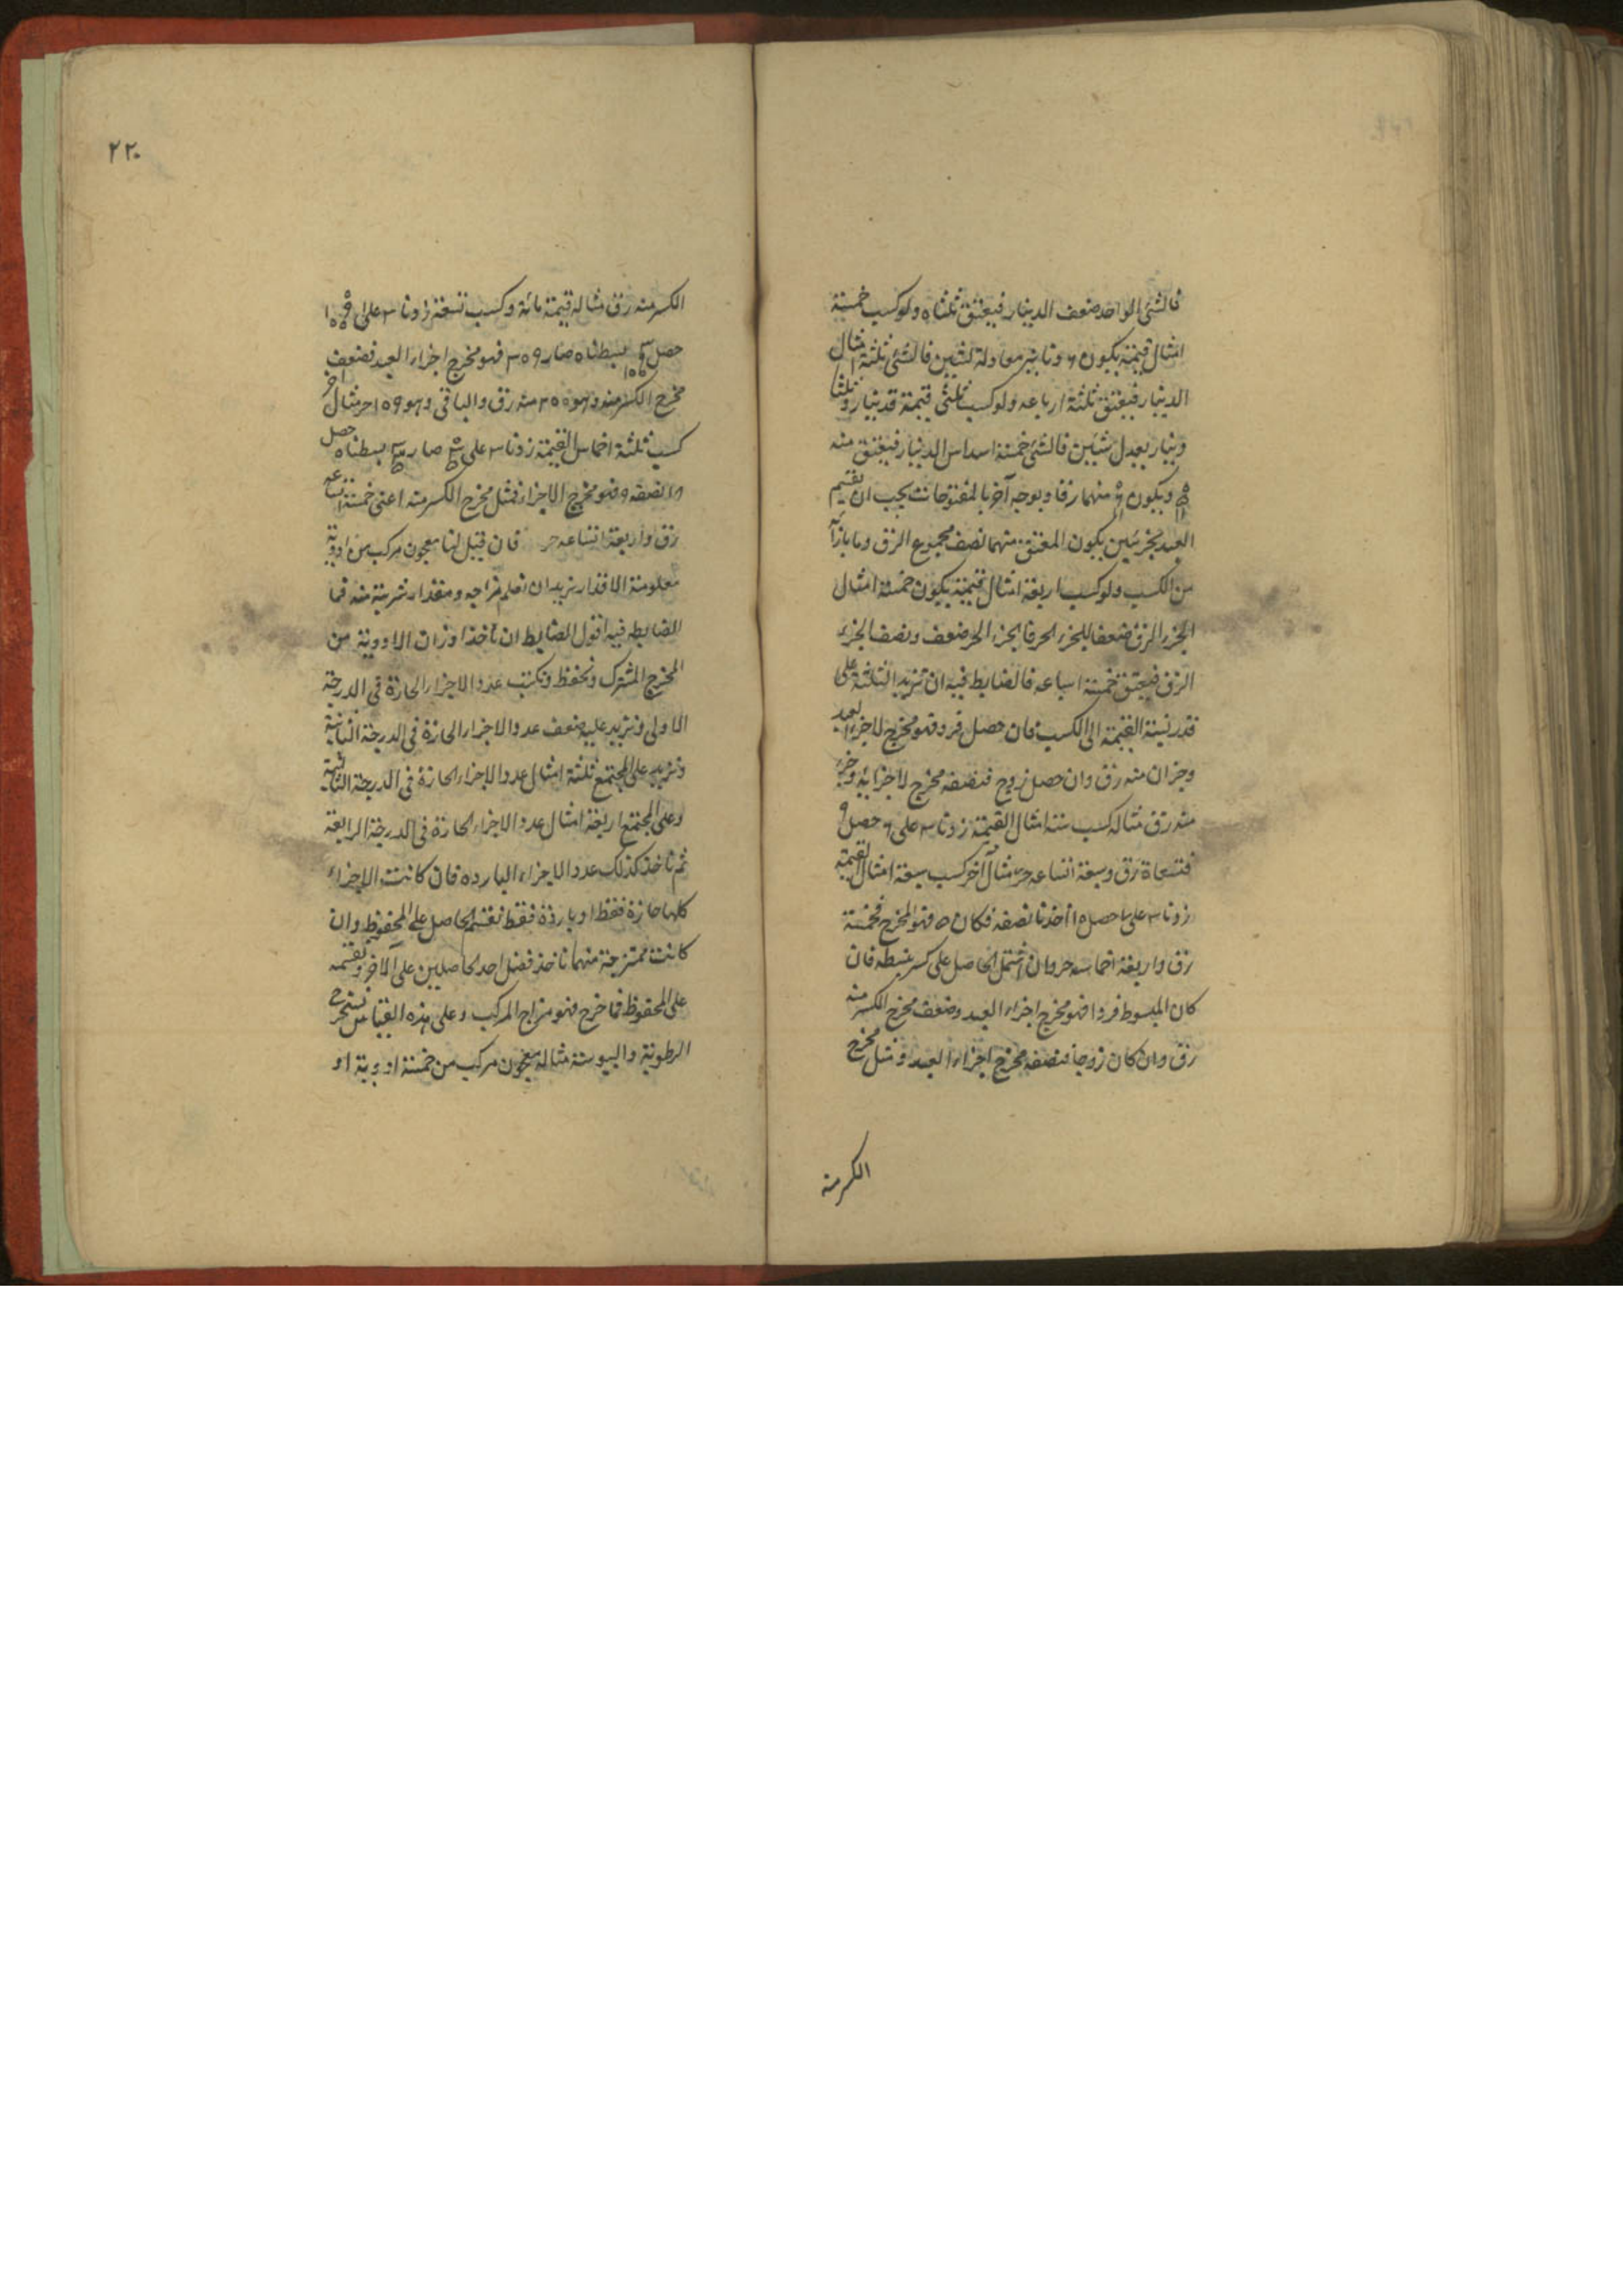 فالشئ الواحد ضعف الدينار فيعتق ثلثاه ولو كسب خمسة
امثال قيمته يكون ٦ دنانير معادلة لشيئين فالشئ ثلثة امثال
الدينار فيعتق ثلثة ارباعه ولو كسب ثلثى قيمته فدينار وثلثا
دينار يعدل شيئين فالشئ خمسة اسداس الدينار فيعتق منه
ويكون منهما رقا وبوجه آخر بالمفتوحات يجب ان يقسم
العبد بجزئين يكون المعتق منهما نصف مجموع الرق وما بازائه
من الكسب ولو كسب اربعة امثال قيمته يكون خمسة امثال
الجزء الرق ضعفا للجزء الحر فالجزء الحر ضعف ونصف الجزء
الرق فيعتق خمسة اسباعه فالضابط فيه ان تزيد الثلثة على
قدر نسبة القيمة الى الكسب فان حصل فرد فهو مخرج لاجزاء العبد
وجزان منه رق وان حصل زوج فنصفه مخرج لاجزايه وجزء
منه رق مثاله كسب ستة امثال القيمة زدنا ٣ على ٦ حصل ٩
فتسعاه رق وسبعة اتساعه حر مثال آخر كسب سبعة امثال القيمة
زدنا ٣ على ٧ حصل ١٠ اخذنا نصفه فكان ٥ فهو المخرج فخمسه
رق واربعة اخماسه حر وان اشتمل الحاصل على كسر بسطه فان
كان المبسوط فردا فهو مخرج اجزاء العبد وضعف مخرج الكسر منه
رق وان كان زوجا فنصفه مخرج اجزاء العبد ومثل مخرج
الكسر منه
٢٢٠
الكسر منه رق مثاله قيمة مائة وكسب تسعة زدنا ٣ على
حصل بسطناه صار ٣٥٩ فهو مخرج اجزاء العبد فضعف
مخرج الكسر منه وهو ٢٠٠ منه رق والباقى وهو ١٥٩ حر مثال آخر
كسب ثلثة اخماس القيمة زدنا ٣ على صار بسطناه حصل
١٨ نصفه ٩ فهو مخرج الاجزاء فمثل مخرج الكسر منه اعنى خمسة اتساعه
رق واربعة اتساعه حر فان قيل لنا معجون مركب من ادوية
معلومة الاقدار نريد ان نعلم مزاجه ومقدار شربته منه فما
الضابطه فيه اقول الضابط ان تأخذ اوزان الادوية من
المخرج المشترك وتحفظ وتكتب عدد الاجزاء الحارة فى الدرجة
الاولى وتزيد عليه ضعف عدد الاجزاء الحارة فى الدرجة الثانية
وتزيد على المجتمع ثلثة امثال عدد الاجزاء الحارة فى الدرجة الثالثة
وعلى المجتمع اربعة امثال عدد الاجزاء الحارة فى الدرجة الرابعة
ثم تاخذ كذلك عدد الاجزاء البارده فان كانت الاجزاء
كلها حارة فقط او باردة فقط نقسم الحاصل على المحفوظ وان
كانت ممتزجة منهما تاخذ فضل احد الحاصلين على الآخر ونقسمه
على المحفوظ فما خرج فهو مزاج المركب وعلى هذه القياس نستخرج
الرطوبة واليبوسة مثاله معجون مركب من خمسة ادوية او